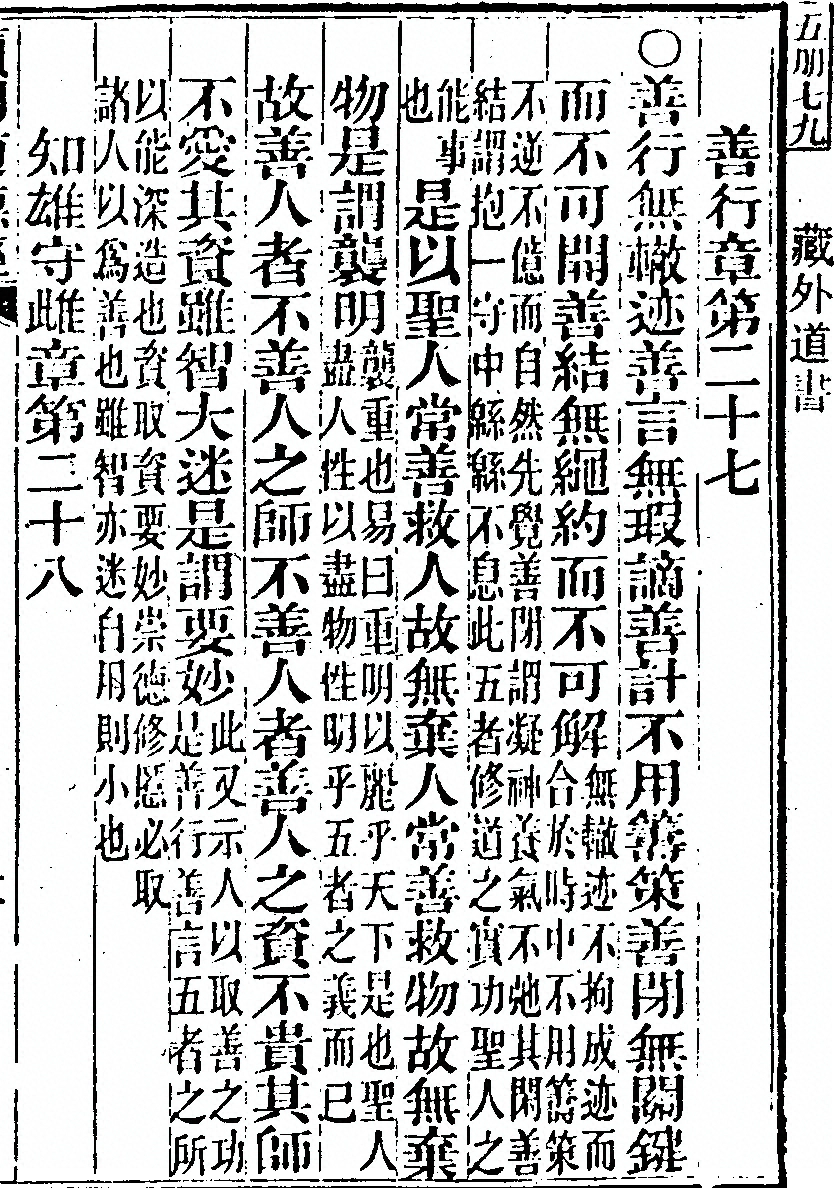 五册七九
藏外道書
善行章第二十七
〇善行無轍迹善言無瑕謫善計不用籌策善閉無關鍵
而不可開善結無繩約而不可解
無轍迹不拘成迹而
合於時中不用籌策
不逆不億而自然先覺善閉謂凝神養氣不弛其閑善
結謂抱一守中緜緜不息此五者修道之實功聖人之
能事
也
是以聖人常善救人故無棄人常善救物故無棄
物是謂襲明
襲重也易曰重明以麗乎天下是也聖人
盡人性以盡物性明乎五者之義而已
故善人者不善人之師不善人者善人之資不貴其師
不愛其資雖智大迷是謂要妙
此又示人以取善之功
是善行善言五者之所
以能深造也資取資要妙崇德修慝必取
諸人以爲善也雖智亦迷自用則小也
知雄守雌章第二十八